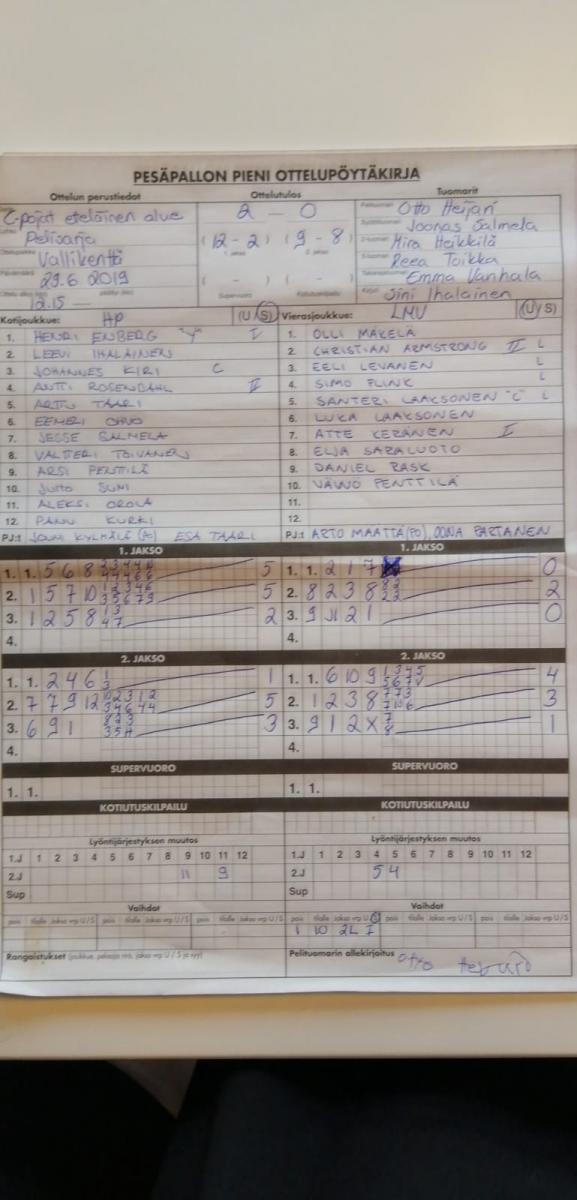 PESÄPALLON PIENI OTTELUPÖYTÄKIRJA
Ottelun perustiedot Ottelutulos Tuomarit
C-pojat eteläinen alue
Pelisarja
Vallikenttä
29.6 2019
12.15
2 - 0
(12 - 2) (9 - 8)
( - ) ( - )
Supervuoro Kotiutuskilpailu
Otto Heijari
Joonas Salmela
Mira Heikkilä
Reea Toikka
Emma Vanhala
Sini Ihalainen
Kotijoukkue: HP (U/S)
1. HENRI ENBERG "V" I
2. LEEVI IHALAINEN
3. JOHANNES KIRI C
4. ANTTI ROSENDAHL II
5. ARTTU TAARI
6. EEMERI
7. JESSE SALMELA
8. VALTTERI TOIVANEN
9. ARSI PENTTILÄ
10. JUHO SUNI
11. ALEKSI OROLA
12. PANU KURKI
PJ:t JOUNI KYLHÄLÄ ESA TAARI
Vierasjoukkue: LMV (U/S)
1. OLLI MÄKELÄ
2. CHRISTIAN ARMSTRONG II L
3. EELI LEVANEN L
4. SIMO FLINK L
5. SANTERI LAAKSONEN "C" L
6. LUKA LAAKSONEN
7. ATTE KERÄNEN I
8. ELJA SARALUOTO
9. DANIEL RASK
10. VÄINÖ PENTTILÄ
11.
12.
PJ:t ARTO MÄÄTTÄ (PJ), OONA PARTANEN
1. JAKSO
1. 1. 5 6 8 5
2. 1 5 7 10 5
3. 1 2 5 8 2
4.
1. JAKSO
1. 1. 2 1 7 0
2. 8 2 3 8 2
3. 9 1 2 1 0
4.
2. JAKSO
1. 1. 2 4 6 1
2. 7 7 9 12 5
3. 6 9 1 3
4.
2. JAKSO
1. 1. 6 10 9 4
2. 1 2 3 8 3
3. 9 1 2 X 1
4.
SUPERVUORO
1. 1.
SUPERVUORO
1. 1.
KOTIUTUSKILPAILU
KOTIUTUSKILPAILU
Lyöntijärjestyksen muutos
1.J 1 2 3 4 5 6 7 8 9 10 11 12
2.J 11 9
Sup
Lyöntijärjestyksen muutos
1.J 1 2 3 4 5 6 7 8 9 10 11 12
2.J 5 4
Sup
Vaihdot
pois tilalle Jakso vrp U/S pois tilalle Jakso vrp U/S
Vaihdot
pois tilalle Jakso vrp U/S pois tilalle Jakso vrp U/S
1 10 2L I
Rangaistukset (joukkue, pelaaja nro, jakso vrp U / S ja syy)
Pelituomarin allekirjoitus Otto